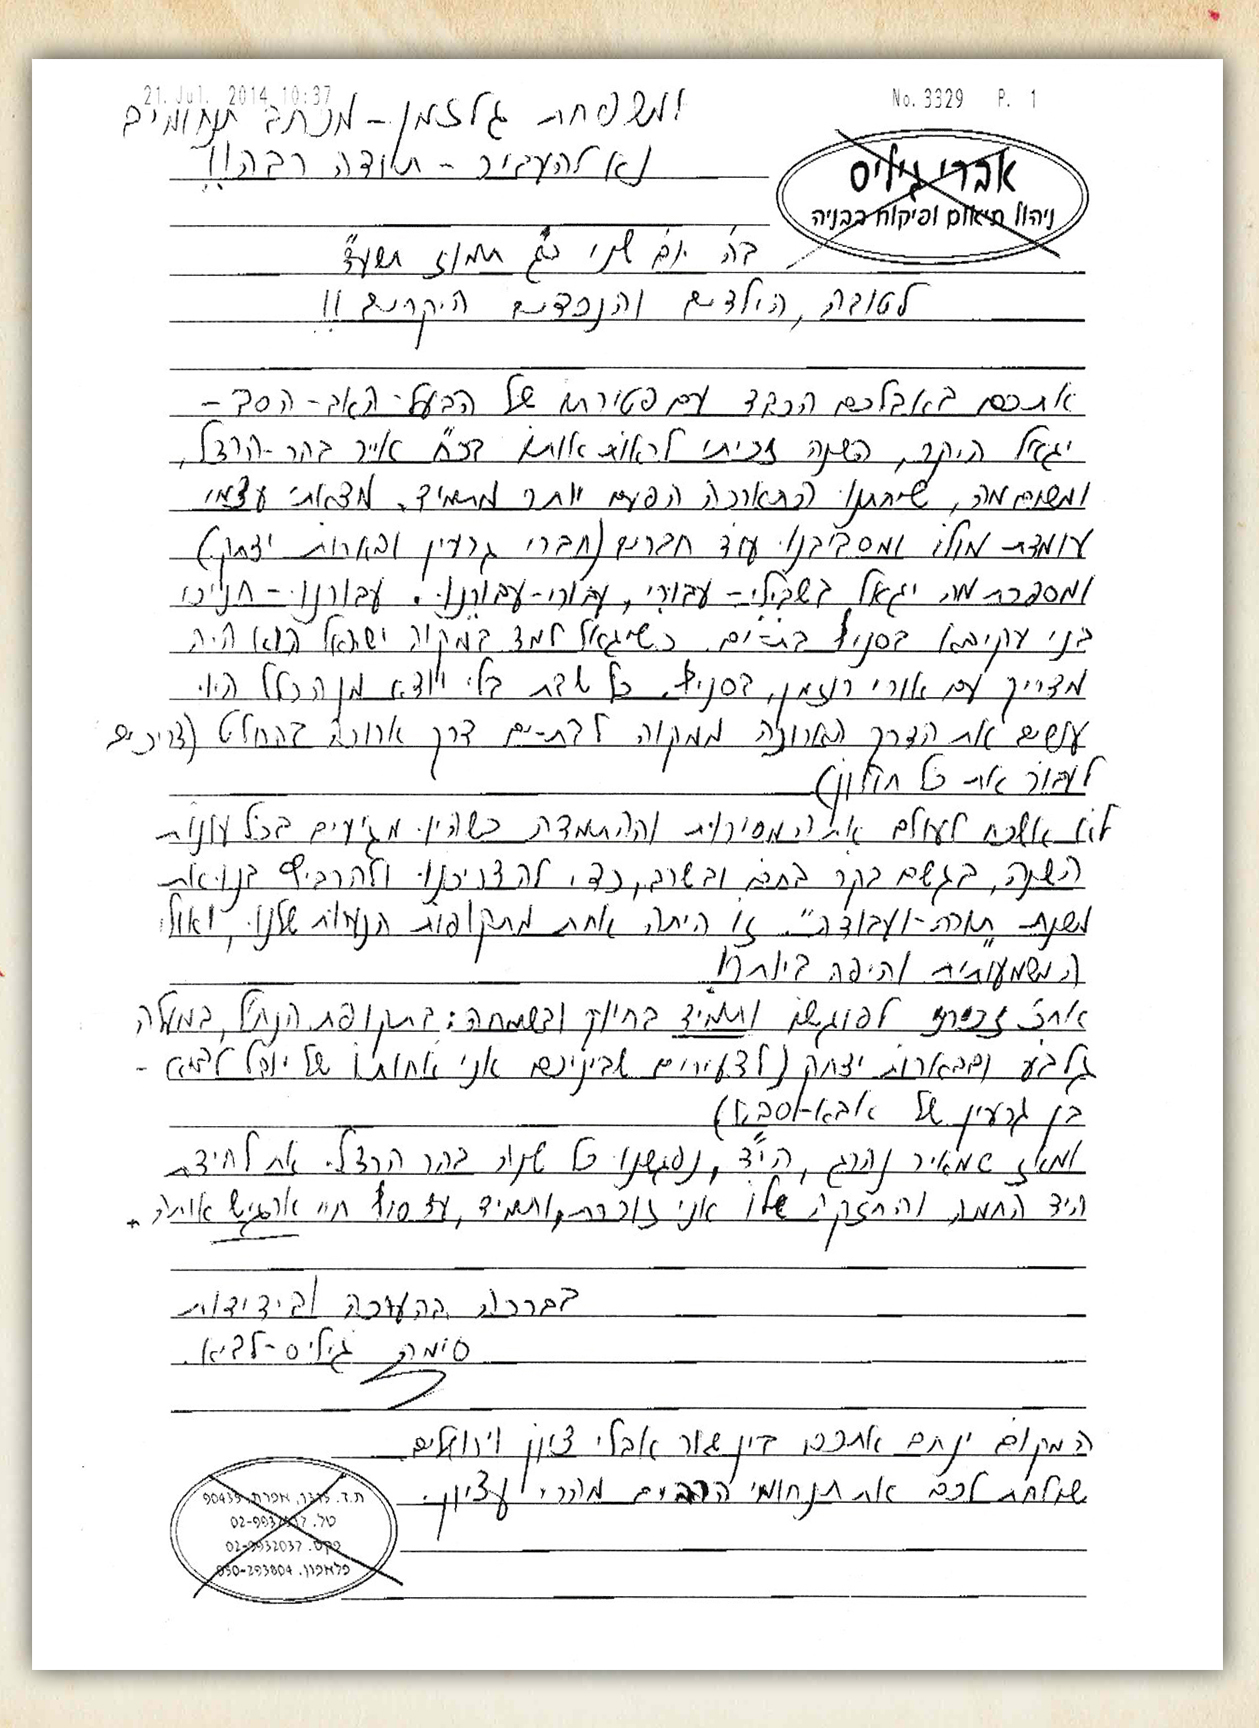 21. Jul. 2014 10:37
No. 3329 P. 1
למשפחת גלזמן - מכתב תנחומים
נא להעביר - תודה רבה!!
אברי גיליס
ניהול תיאום ופיקוח בבניה
בה' יום שני כג תמוז תשע"ד
לטובה, הילדים והנכדים היקרים!!
אתכם באבלכם הכבד עם פטירתו של הבעל-האב-הסב-
יגאל היקר, השנה זכיתי לראות אותו בכ"ח אייר בהר-הרצל,
ומשום מה, שיחתנו התארכה הפעם יותר מתמיד. מצאתי עצמי
עומדת מולו ומסביבנו עוד חברים (חברי גרעין ובארות יצחק)
ומספרת מה יגאל בשבילי-עבורי, עבורי-עבורנו. עבורנו-חניכי
בני עקיבא בסניף בת-ים. כשיגאל למד במקוה ישראל הוא היה
מדריך עם אורי רוזמן, בסניף. כל שבת בלי יוצא מן הכלל היו
עושים את הדרך הארוכה ממקוה לבת-ים דרך ארוכה בהחלט (צריכים
לעבור את כל חולון)
לא אשכח לעולם את המסירות וההתמדה כשהיו מגיעים בכל עונות
השנה, בגשם בקר בחם ובשרב, כדי להדריכנו ולהרביץ בנו את
משנת "תורה-ועבודה". זו היתה אחת מתקופות הנעורים שלנו, ואולי
המשמעותית והיפה ביותר!
אח"כ זכיתי לפוגשו ותמיד בחיוך ובשמחה: בתקופת הנח"ל, במעלה
גלבע ובבארות יצחק (לצעירים שביניכם אני אחותו של יובל לביא -
בן גרעין של אבא-וסבא)
ומאז שמאיר נהרג, הי"ד, נפגשנו כל שנה בהר הרצל. את לחיצת
היד החמה והחזקה שלו אני זוכרת, ותמיד, עד סוף חיי ארגיש אותה.
בברכה בהערכה ובידידות
סימה גיליס-לביא.
המקום ינחם אתכם בין שאר אבלי ציון וירושלים
שולחת לכם את תנחומי הרבים מהרי עציון.
ת.ד. 1373, אפרת, 90435
טל. 02-9931
פקס. 02-9932037
פלאפון. 050-293804